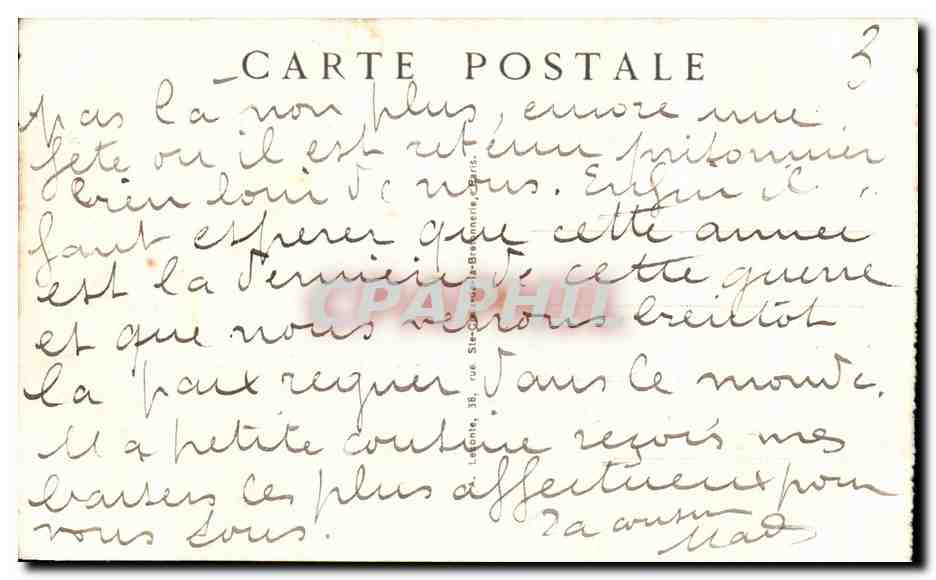 3
CARTE POSTALE
pas là non plus, encore une
fête ou il est retenu prisonnier
bien loin de nous. Enfin il
faut esperer que cette année
est la dernière de cette guerre
et que nous verrons bientot
la paix regner dans le monde.
Ma petite cousine reçois mes
baisers les plus affectueux pour
vous tous.
Ta cousine
A. Leconte, 38, rue Ste-Croix-de-la-Bretonnerie, Paris.
CPAPHIL